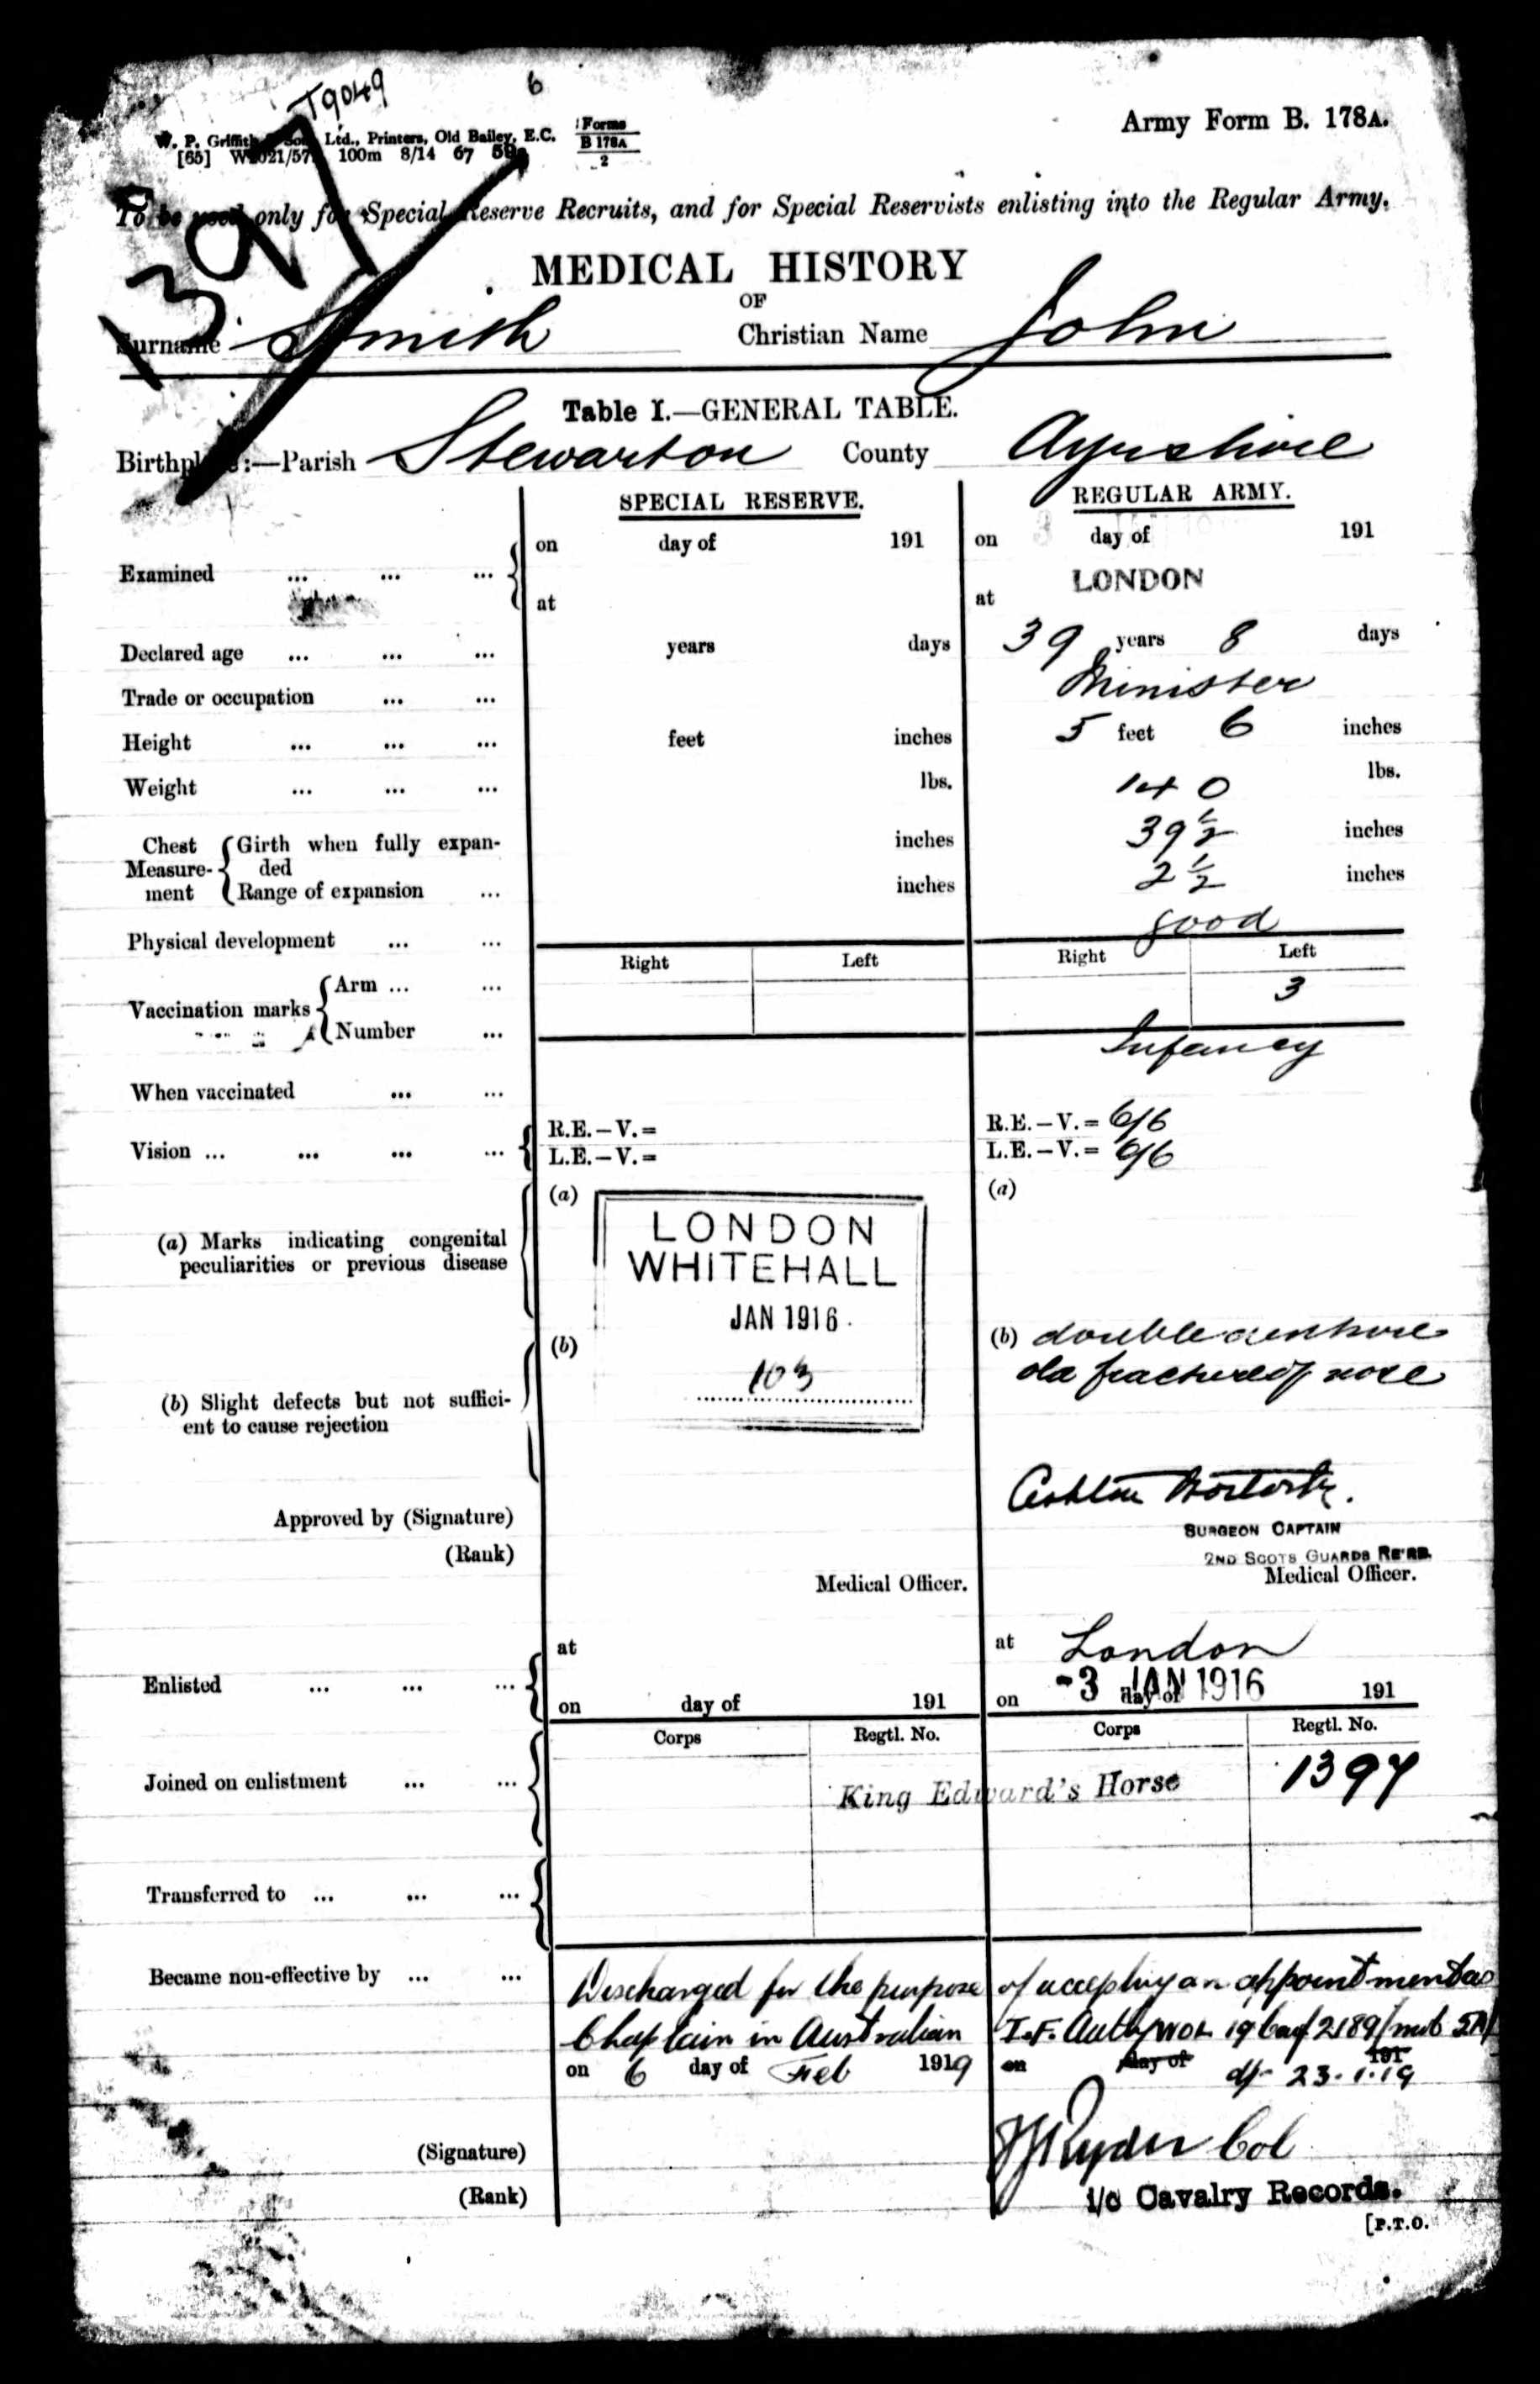 T9049
6
W. P. Griffith & Sons Ltd., Printers, Old Bailey, E.C.
Forms
B 178A
2
[65] 100m 8/14 67
Army Form B. 178A.
To be used only for Special Reserve Recruits, and for Special Reservists enlisting into the Regular Army.
1397
MEDICAL HISTORY
OF
Surname Smith Christian Name John
Table I.—GENERAL TABLE.
Birthplace:—Parish Stewarton County Ayrshire
SPECIAL RESERVE. REGULAR ARMY.
Examined ... ... ... on day of 191 on day of 191
at at LONDON
Declared age ... ... ... years days 39 years 8 days
Trade or occupation ... ... Minister
Height ... ... ... feet inches 5 feet 6 inches
Weight ... ... ... lbs. 140 lbs.
Chest Measurement Girth when fully expanded inches 39½ inches
Range of expansion ... inches 2½ inches
Physical development ... ... good
Right Left Right Left
Vaccination marks Arm ... ... 3
Number ...
When vaccinated ... ... Infancy
Vision ... ... ... ... R.E.–V.= R.E.–V.= 6/6
L.E.–V.= L.E.–V.= 6/6
(a) Marks indicating congenital peculiarities or previous disease (a) (a)
LONDON
WHITEHALL
JAN 1916
103
(b) Slight defects but not sufficient to cause rejection (b) (b) double denture
old fracture of nose
Approved by (Signature)
SURGEON CAPTAIN
(Rank) 2ND SCOTS GUARDS
Medical Officer. Medical Officer.
Enlisted ... ... ... at at London
on day of 191 on -3 JAN 1916 day of 191
Corps Regtl. No. Corps Regtl. No.
Joined on enlistment ... ... King Edward's Horse 1397
Transferred to ... ... ...
Became non-effective by ... ... Discharged for the purpose of accepting an appointment as
Chaplain in Australian I.F. Auth
on 6 day of Feb 1919 on day of 191 d/- 23.1.19
(Signature) Ryder Col
(Rank) i/c Cavalry Records.
[P.T.O.